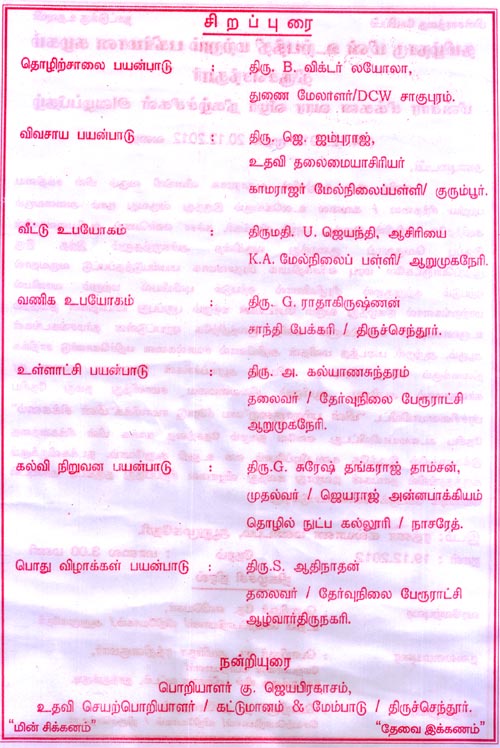 சிறப்புரை
தொழிற்சாலை பயன்பாடு : திரு. B. விக்டர் லயோலா,
துணை மேலாளர்/DCW சாகுபுரம்.
விவசாய பயன்பாடு : திரு. ஜெ. ஐம்புராஜ்,
உதவி தலைமையாசிரியர்
காமராஜர் மேல்நிலைப்பள்ளி/ குரும்பூர்.
வீட்டு உபயோகம் : திருமதி. U. ஜெயந்தி, ஆசிரியை
K.A. மேல்நிலைப் பள்ளி/ ஆறுமுகநேரி.
வணிக உபயோகம் : திரு. G. ராதாகிருஷ்ணன்
சாந்தி பேக்கரி / திருச்செந்தூர்.
உள்ளாட்சி பயன்பாடு : திரு. அ. கல்யாணசுந்தரம்
தலைவர் / தேர்வுநிலை பேரூராட்சி
ஆறுமுகநேரி.
கல்வி நிறுவன பயன்பாடு : திரு.G. சுரேஷ் தங்கராஜ் தாம்சன்,
முதல்வர் / ஜெயராஜ் அன்னபாக்கியம்
தொழில் நுட்ப கல்லூரி / நாசரேத்.
பொது விழாக்கள் பயன்பாடு : திரு.S. ஆதிநாதன்
தலைவர் / தேர்வுநிலை பேரூராட்சி
ஆழ்வார்திருநகரி.
நன்றியுரை
பொறியாளர் கு. ஜெயபிரகாசம்,
உதவி செயற்பொறியாளர் / கட்டுமானம் & மேம்பாடு / திருச்செந்தூர்.
“மின் சிக்கனம்” “தேவை இக்கணம்”